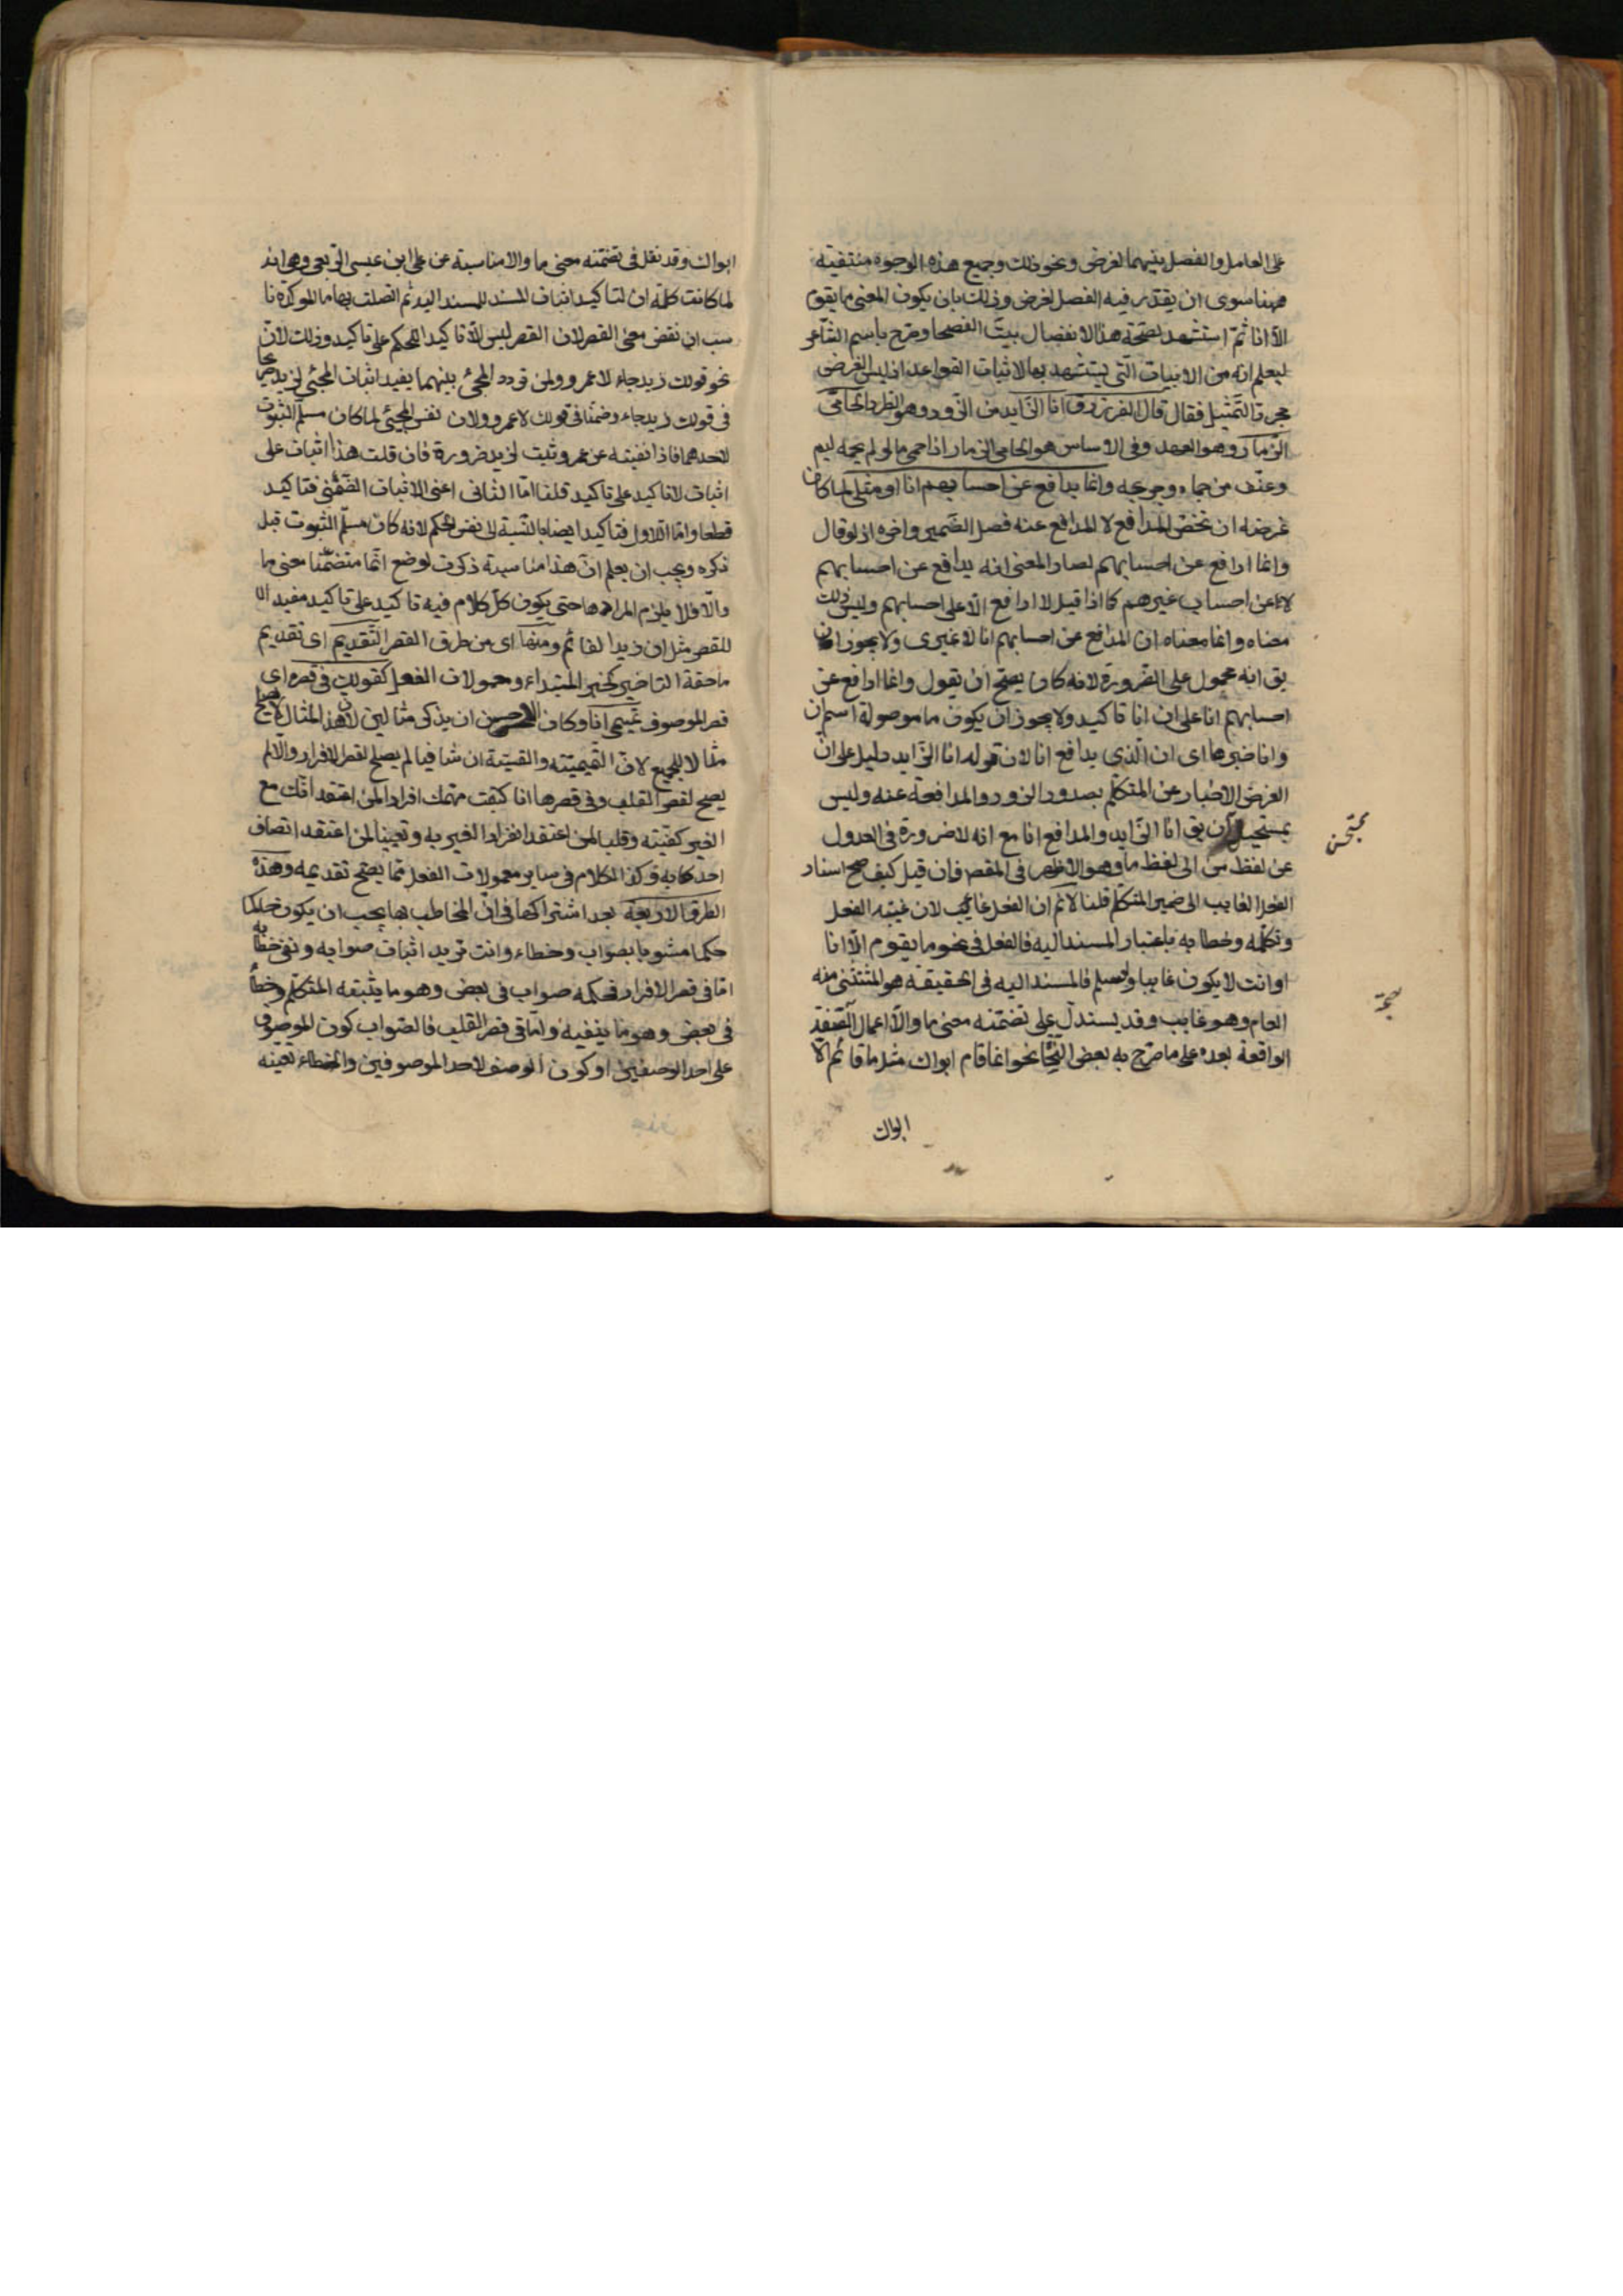 على العامل والفصل بينهما لغرض ونحو ذلك وجميع هذه الوجوه منتفية
ههنا سوى ان يقدر فيه الفصل لغرض وذلك بان يكون المعنى ما يقوم
الا انا ثم استشهد لصحة هذا الانفصال ببيت الفصحا وصرح باسم الشاعر
ليعلم انه من الابيات التي يستشهد بها لاثبات القواعد اذ ليس الغرض
مجرد التمثيل فقال قال الفرزدق انا الزايد من الزود وهو الطرد الحامي
الزمار وهو العهد وفي الاساس هو الحامي الزمار اذا حمى ما لو لم يحمه ليم
وعنف من حماه وحريمه وانما يدافع عن احسابهم انا او مثلي لما كان
غرضه ان يخص المدافع لا المدافع عنه فصل الضمير واخره اذ لو قال
وانما ادافع عن احسابهم لصار المعنى انه يدافع عن احسابهم
لا عن احساب غيرهم كما اذا قيل لا ادافع الا على احسابهم وليس ذلك
معناه وانما معناه ان المدافع عن احسابهم انا لا غيري ولا يجوز ان
يق انه محمول على الضرورة لانه كان يصح ان يقول وانما ادافع عن
احسابهم انا على ان انا تاكيد ولا يجوز ان يكون ما موصولة اسم ان
وانا خبرها اى ان الذي يدافع انا لان قوله انا الزايد دليل على ان
الغرض الاخبار عن المتكلم بصدور الزود والمدافعة عنه وليس
بمستحسن ان يق انا الزايد والمدافع انا مع انه لا ضرورة في العدول
عن لفظ من الى لفظ ما وهو الاظهر في المقصر فان قيل كيف صح اسناد
الفعل الغايب الى ضمير المتكلم قلنا لانم ان الفعل غايب لان غيبة الفعل
وتكلمه وخطابه باعتبار المسند اليه فالفعل في نحو ما يقوم الا انا
او انت لا يكون غايبا ولو سلم فالمسند اليه في الحقيقة هو المستثنى منه
العام وهو غايب وقد يستدل على تضمنه معنى ما والا اعمال الصفة
الواقعة بعده على ما صرح به بعض النحاة نحو انما قام ابواك مثل ما قائم الا
ابواك
ابواك وقد نقل في تضمنه معنى ما والا مناسبة عن على ابن عيسى الربعي وهي انه
لما كانت كلمة ان لتاكيد اثبات المسند للمسند اليه ثم اتصلت بها ما الموكدة نا
سب ان نقض معنى القصر لان القصر ليس الا تاكيد الحكم على تاكيد وذلك لان
نحو قولك زيد جاء لا عمرو ولمن تردد المجئ بينهما يفيد اثبات المجئ لزيد صريحا
في قولك زيد جاء وضمنا في قولك لا عمرو ولان نفس المجيئ لما كان مسلم الثبوت
لاحدهما فاذا نفيته عن عمرو ثبت لزيد ضرورة فان قلت هذا اثبات على
اثبات لا تاكيد على تاكيد قلنا اما الثاني اعنى الاثبات الضمني فتاكيد
قطعا واما الاول فتاكيد ايضا بالنسبة الى نفس الحكم لانه كان مسلم الثبوت قبل
ذكره ويجب ان يعلم ان هذا مناسبة ذكرت لوضع انما متضمنا معنى ما
والا فلا يلزم المراد هاحتى يكون كل كلام فيه تاكيد على تاكيد مفيد الا
للقصر مثل ان زيدا لقائم ومنها اى من طرق القصر التقديم اى تقديم
ما حقه التاخير كخبر المبتداء ومعمولات الفعل كقولك في قصره اى
قصر الموصوف تميمي انا وكان الاحسن ان يذكر مثالين لان هذا المثال لا يصلح
مثالا للجميع لان التميمية والقيسية ان تنافيا لم يصلح لقصر الافراد والا لم
يصح لقصر القلب وفي قصرها انا كفيت مهمك افرادا لمن اعتقد انك مع
الغير كفيته وقلبا لمن اعتقد انفراد الغير به وتعيينا لمن اعتقد اتصاف
احدكما به وكذا الكلام في ساير معمولات الفعل مما يصح تقديمه وهذه
الطرق الاربعة بعد اشتراكها في ان المخاطب بها يجب ان يكون حاكما
حكما مشوبا بصواب وخطاء وانت تريد اثبات صوابه ونفى خطائه
اما في قصر الافراد فحكمه صواب في بعض وهو ما يثبته المتكلم وخطأ
في بعض وهو ما ينفيه واما في قصر القلب فالصواب كون الموصوف
على احد الوصفين او كون الوصف لاحد الموصوفين والخطاء تعينه